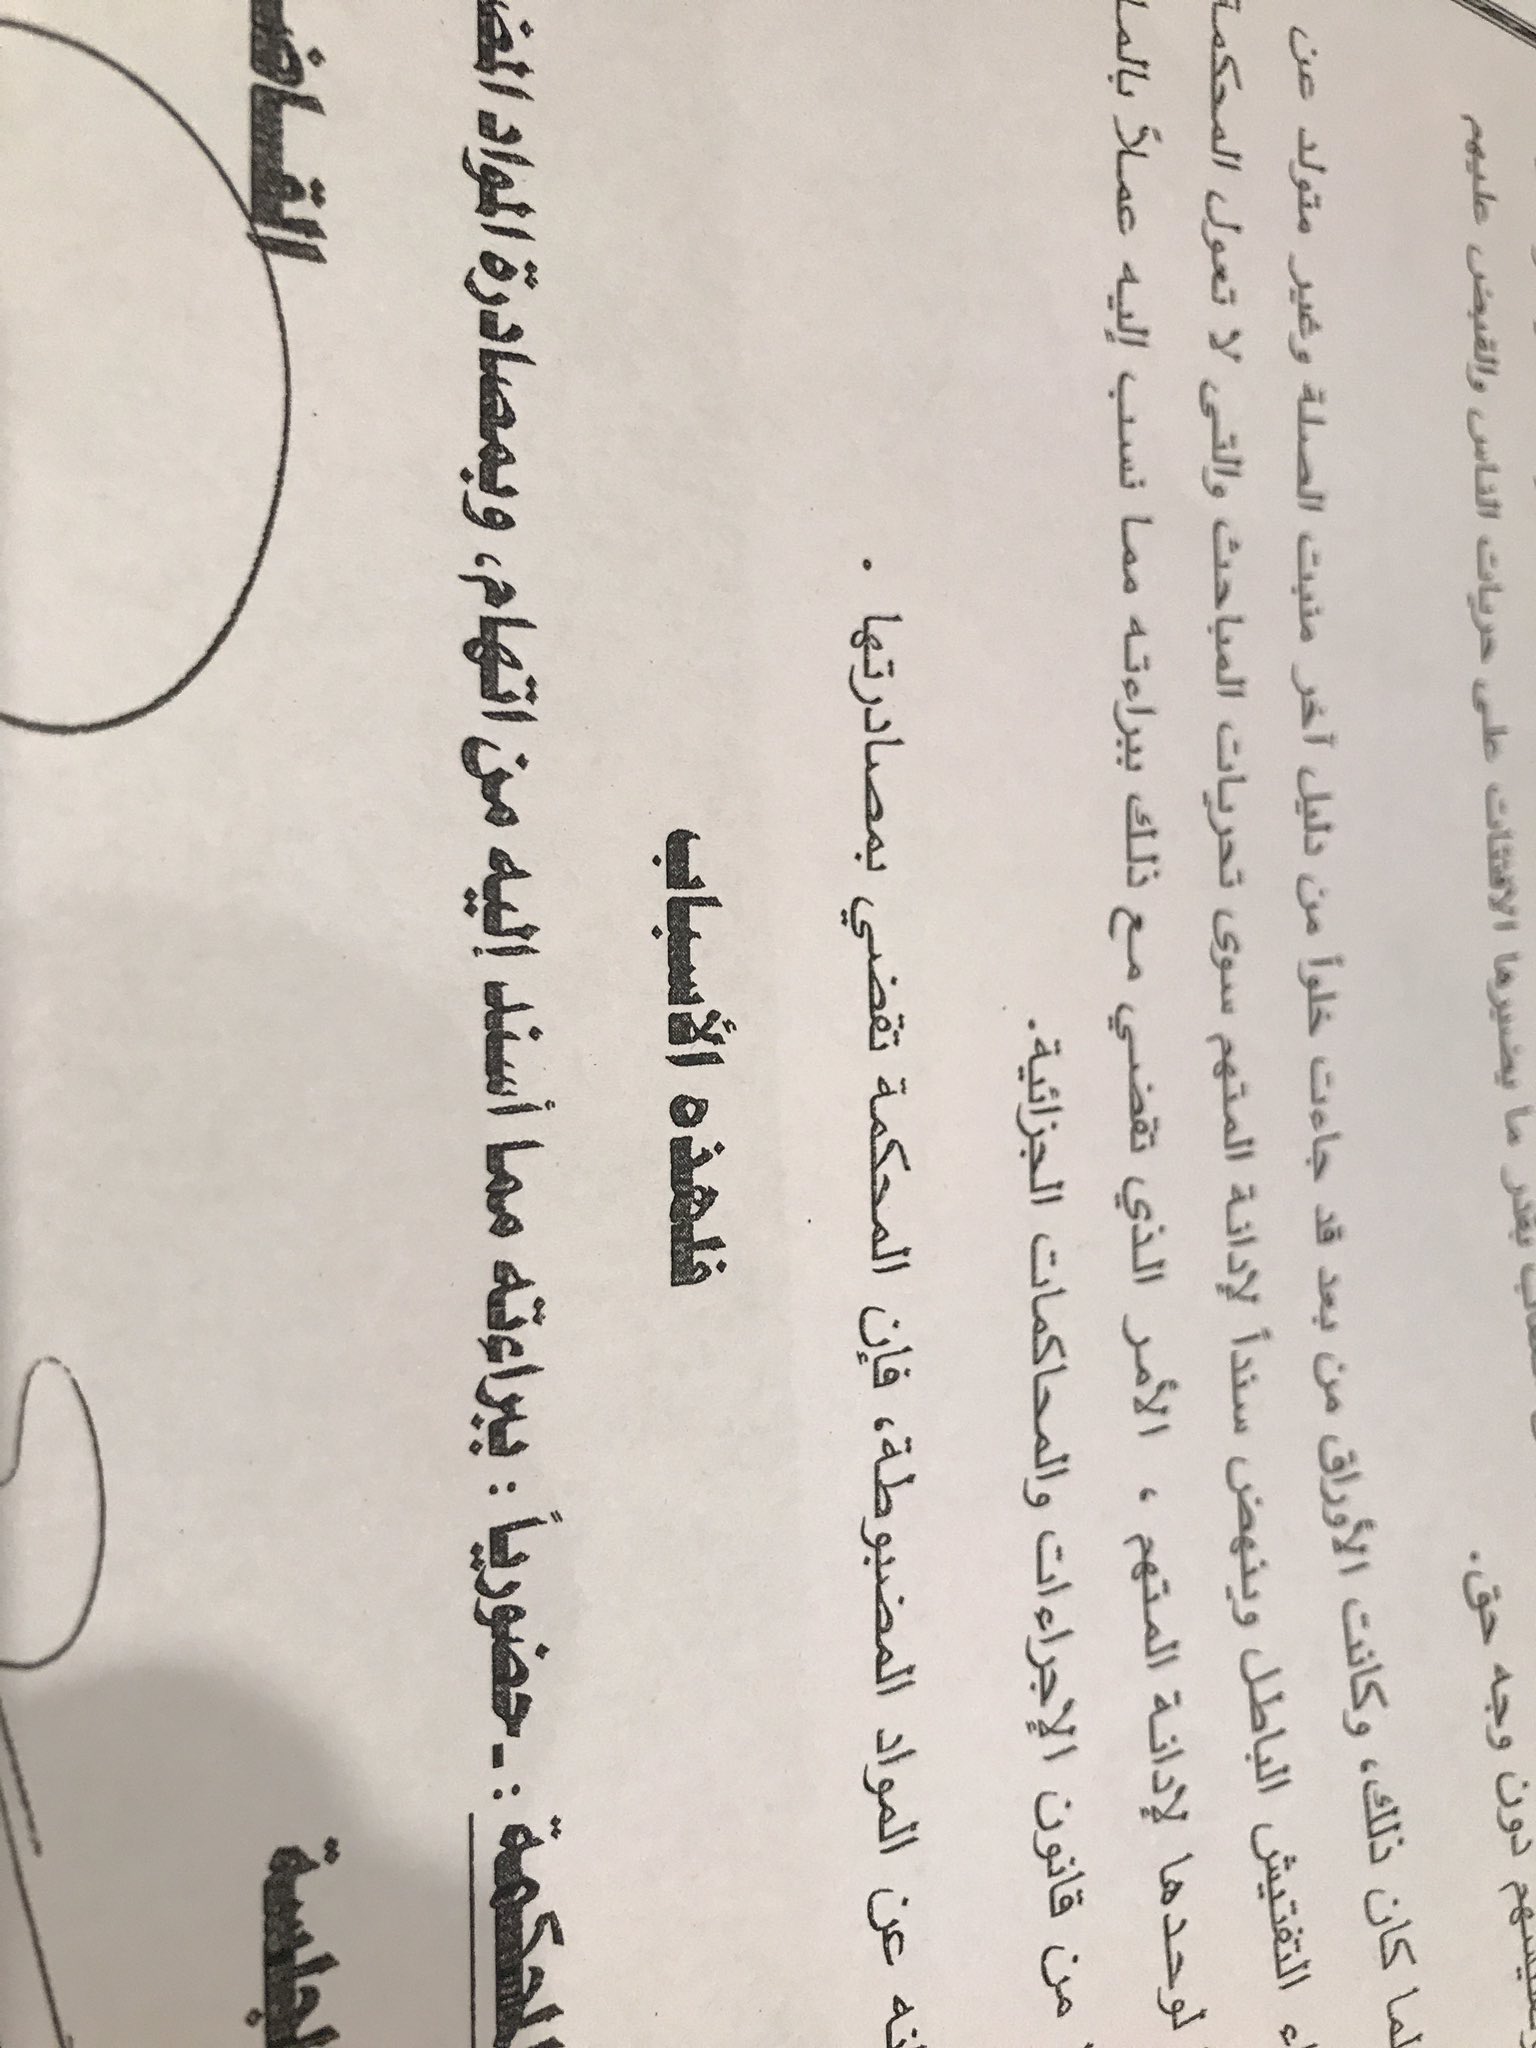 بقدر ما يضيرها الافتئات على حريات الناس والقبض عليهم
دون وجه حق.
لما كان ذلك، وكانت الأوراق من بعد قد جاءت خلواً من دليل آخر منبت الصلة وغير متولد عن
التفتيش الباطل وينهض سنداً لإدانة المتهم سوى تحريات المباحث والتى لا تعول المحكمة
لوحدها لإدانة المتهم ، الأمر الذي تقضي مع ذلك ببراءته مما نسب إليه عملاً بالما
من قانون الإجراءات والمحاكمات الجزائية.
عن المواد المضبوطة، فإن المحكمة تقضي بمصادرتها .
فلهذه الأسباب
المحكمة :ـ حضورياً : ببراءته مما أسند إليه من اتهام، وبمصادرة المواد المض
الجلسة القاض